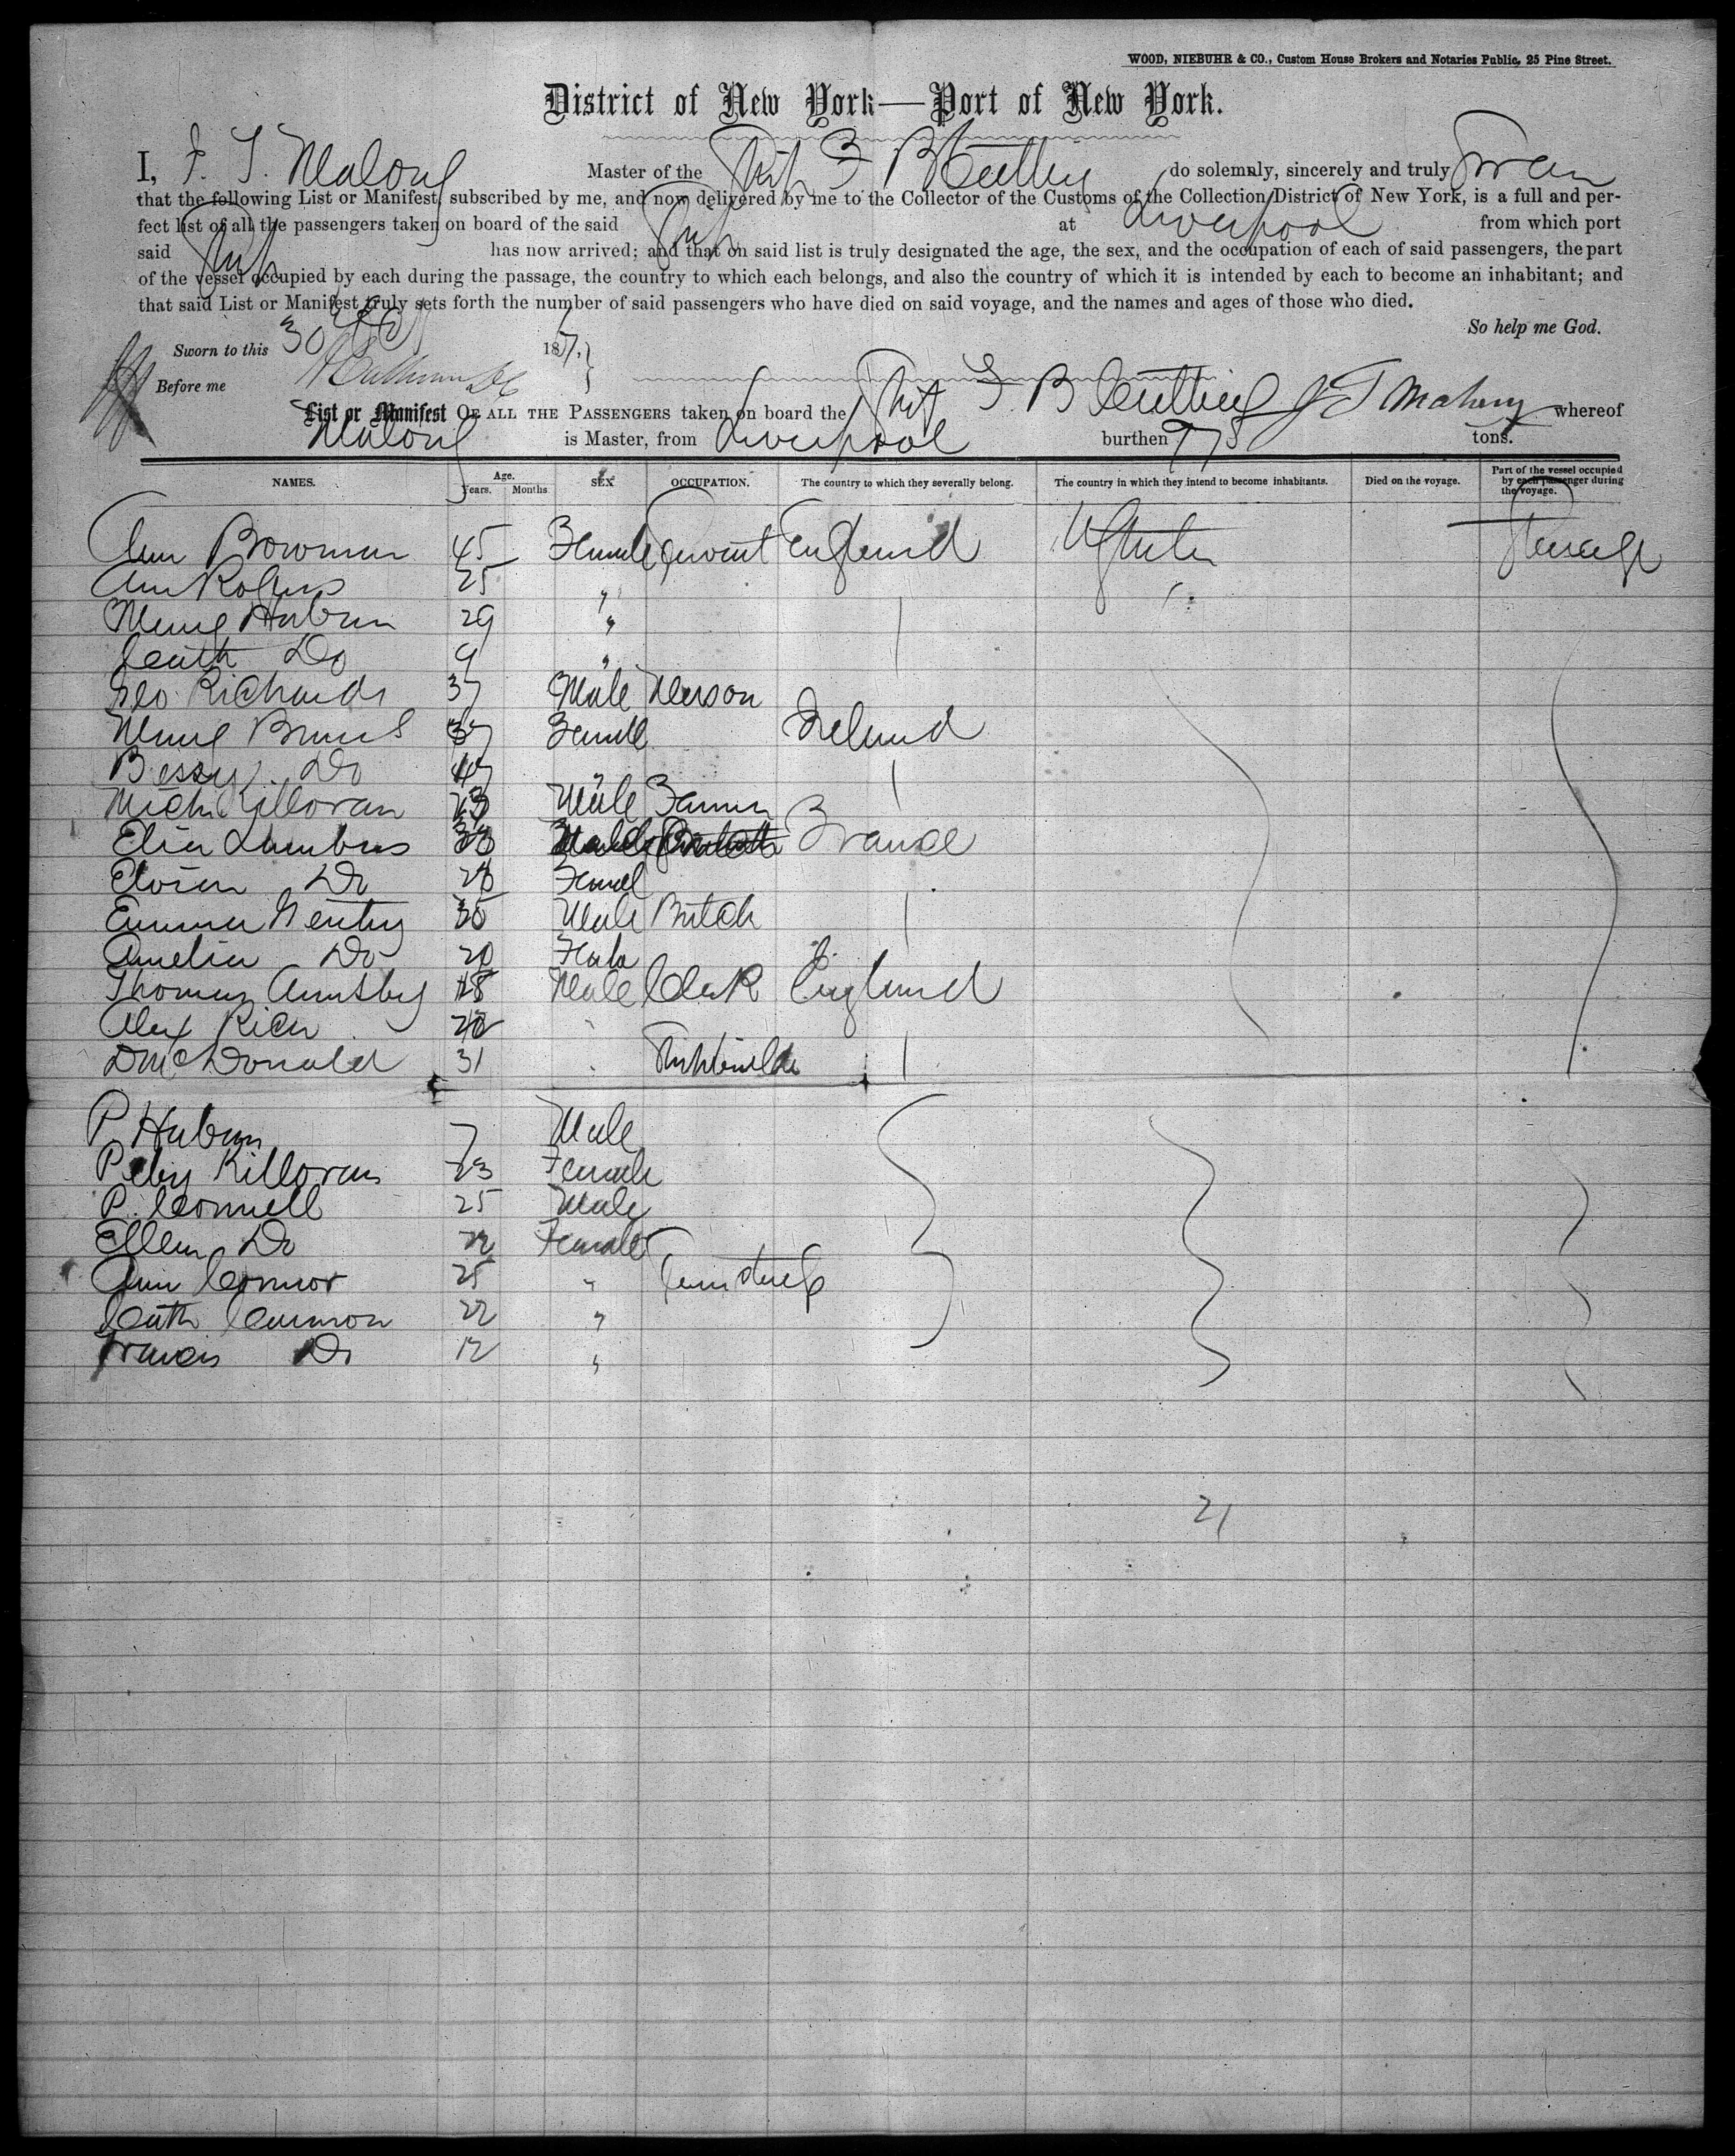 WOOD, NIEBUHR & CO., Custom House Brokers and Notaries Public, 25 Pine Street.
District of New York—Port of New York.
I, J. T. Malony Master of the Ship F B Cutting do solemnly, sincerely and truly Swear
that the following List or Manifest, subscribed by me, and now delivered by me to the Collector of the Customs of the Collection District of New York, is a full and per-
fect list of all the passengers taken on board of the said Ship at Liverpool from which port
said Ship has now arrived; and that on said list is truly designated the age, the sex, and the occupation of each of said passengers, the part
of the vessel occupied by each during the passage, the country to which each belongs, and also the country of which it is intended by each to become an inhabitant; and
that said List or Manifest truly sets forth the number of said passengers who have died on said voyage, and the names and ages of those who died.
So help me God.
Sworn to this 30 187,
Before me
List or Manifest OF ALL THE PASSENGERS taken on board the Ship F. B Cutting J T Malony whereof
Malony is Master, from Liverpool burthen 975 tons.
NAMES. Age. Years. Months SEX OCCUPATION. The country to which they severally belong. The country in which they intend to become inhabitants. Died on the voyage. Part of the vessel occupied by each passenger during the voyage.
Ann Bowman 45 Female Servant England U States Steerage
Ann Rogers 25 "
Hubun 29 "
Cath Do 9 "
Geo. Richards 37 Male Mason
37 Female Ireland
Bessy Do
Mich Killoran Male Farmer
France
Do Female
Emma Gentry 30 Male Butch
Amelia Do 20
Thomas 18 Male Clerk England
Alex Rich
D McDonald 31
P Hubun 7 Male
Killoran 23 Female
P. Connell 25 Male
Ellen Do 22 Female
Ann Connor 25 " Seamstress
Cath Cannon 22 "
Francis Do 12 "
21